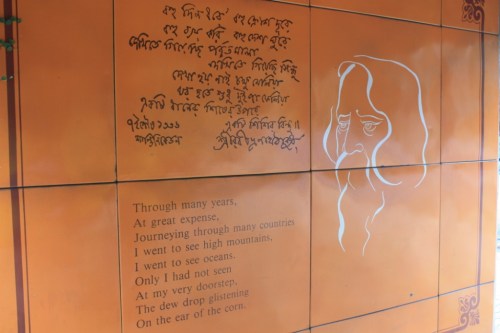 বহু দিন ধরে' বহু ক্রোশ দূরে
বহু ব্যয় করি বহু দেশ ঘুরে
দেখিতে গিয়েছি পর্বতমালা
দেখিতে গিয়েছি সিন্ধু
দেখা হয় নাই চক্ষু মেলিয়া
ঘর হতে শুধু দুই পা ফেলিয়া
একটি ধানের শিষের উপরে
একটি শিশির বিন্দু॥
৭ই পৌষ ১৩৩৬
শান্তিনিকেতন
Through many years,
At great expense,
Journeying through many countries
I went to see high mountains,
I went to see oceans.
Only I had not seen
At my very doorstep,
The dew drop glistening
On the ear of the corn.